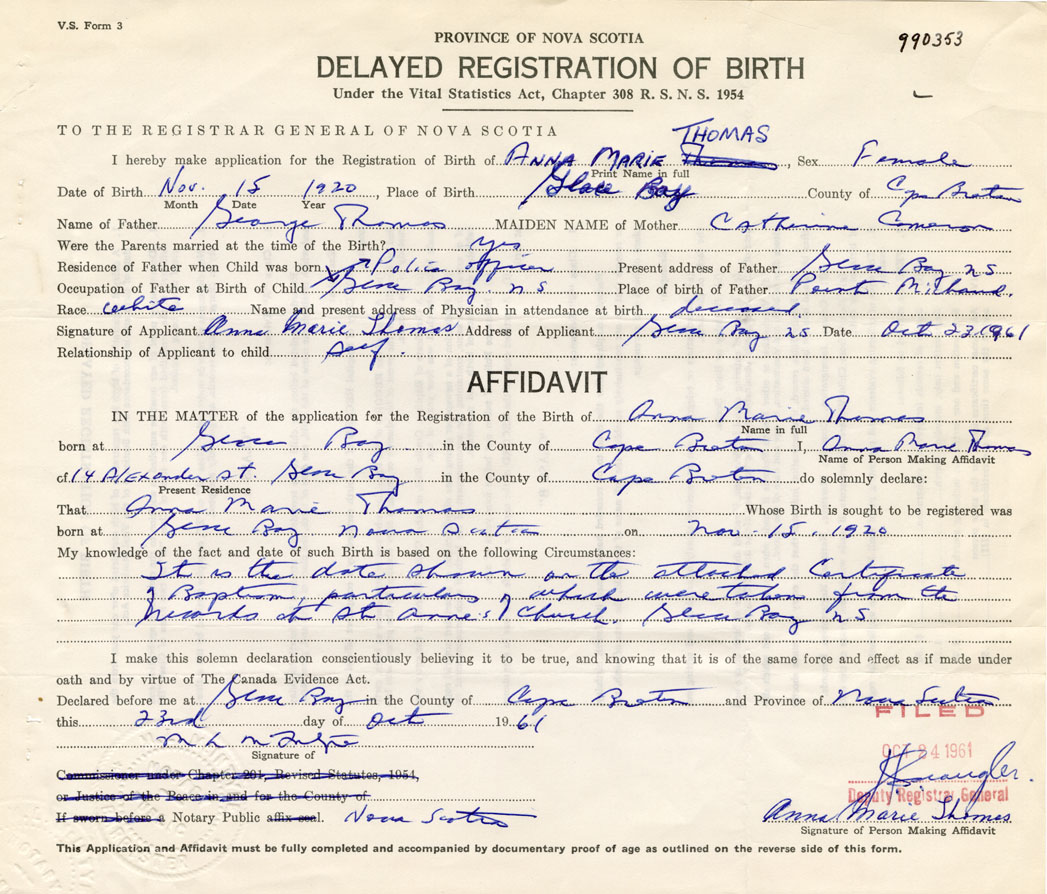 V.S. Form 3
990353
PROVINCE OF NOVA SCOTIA
DELAYED REGISTRATION OF BIRTH
Under the Vital Statistics Act, Chapter 308 R. S. N. S. 1954
TO THE REGISTRAR GENERAL OF NOVA SCOTIA
THOMAS
I hereby make application for the Registration of Birth of ANNA MARIE Thomas, Sex Female
Print Name in full
Date of Birth Nov. 15 1920, Place of Birth Glace Bay County of Cape Breton
Month Date Year
Name of Father George Thomas MAIDEN NAME of Mother Catherine Cameron
Were the Parents married at the time of the Birth? Yes
Residence of Father when Child was born Police officer Present address of Father Glace Bay N S
Occupation of Father at Birth of Child Glace Bay N S. Place of birth of Father Point
Race white Name and present address of Physician in attendance at birth deceased
Signature of Applicant Anna Marie Thomas Address of Applicant Glace Bay NS Date Oct 23. 1961
Relationship of Applicant to child self.
AFFIDAVIT
IN THE MATTER of the application for the Registration of the Birth of Anna Marie Thomas
Name in full
born at Glace Bay in the County of Cape Breton I, Anna Marie Thomas
Name of Person Making Affidavit
of 14 Alexander St. Glace Bay in the County of Cape Breton do solemnly declare:
Present Residence
That Anna Marie Thomas Whose Birth is sought to be registered was
born at Glace Bay Nova Scotia on Nov. 15. 1920
My knowledge of the fact and date of such Birth is based on the following Circumstances:
It is the date shown on the attached Certificate
of Baptism, particulars of which were taken from the
records at St Anne's Church. Glace Bay N S.
I make this solemn declaration conscientiously believing it to be true, and knowing that it is of the same force and effect as if made under
oath and by virtue of The Canada Evidence Act.
Declared before me at Glace Bay in the County of Cape Breton and Province of Nova Scotia
FILED
this 23rd day of Oct 1961
M L
Signature of
OCT 24 1961
Commissioner under Chapter 201, Revised Statutes, 1954,
or Justice of the Peace in and for the County of
Deputy Registrar General
If sworn before a Notary Public affix seal. Nova Scotia
Anna Marie Thomas
Signature of Person Making Affidavit
This Application and Affidavit must be fully completed and accompanied by documentary proof of age as outlined on the reverse side of this form.